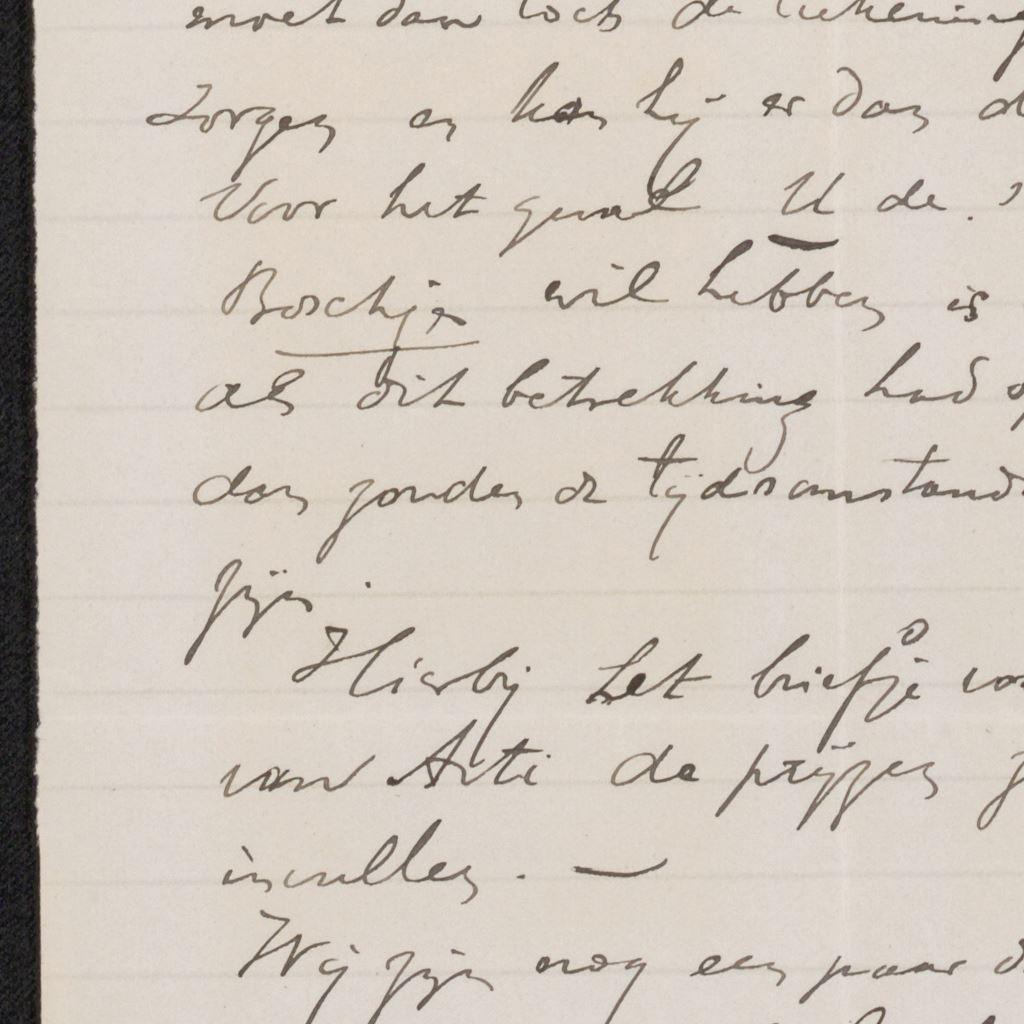 moet dan toch de teekening
Zorgen en kan hij er dan d
Voor het geval U de
Boschje wil hebben is
als dit betrekking had op
dan zouden de tijdsomstand
zijn.
Hierbij het briefje vo
van Arti de prijzen z
invullen. —
Wij zijn nog een paar d